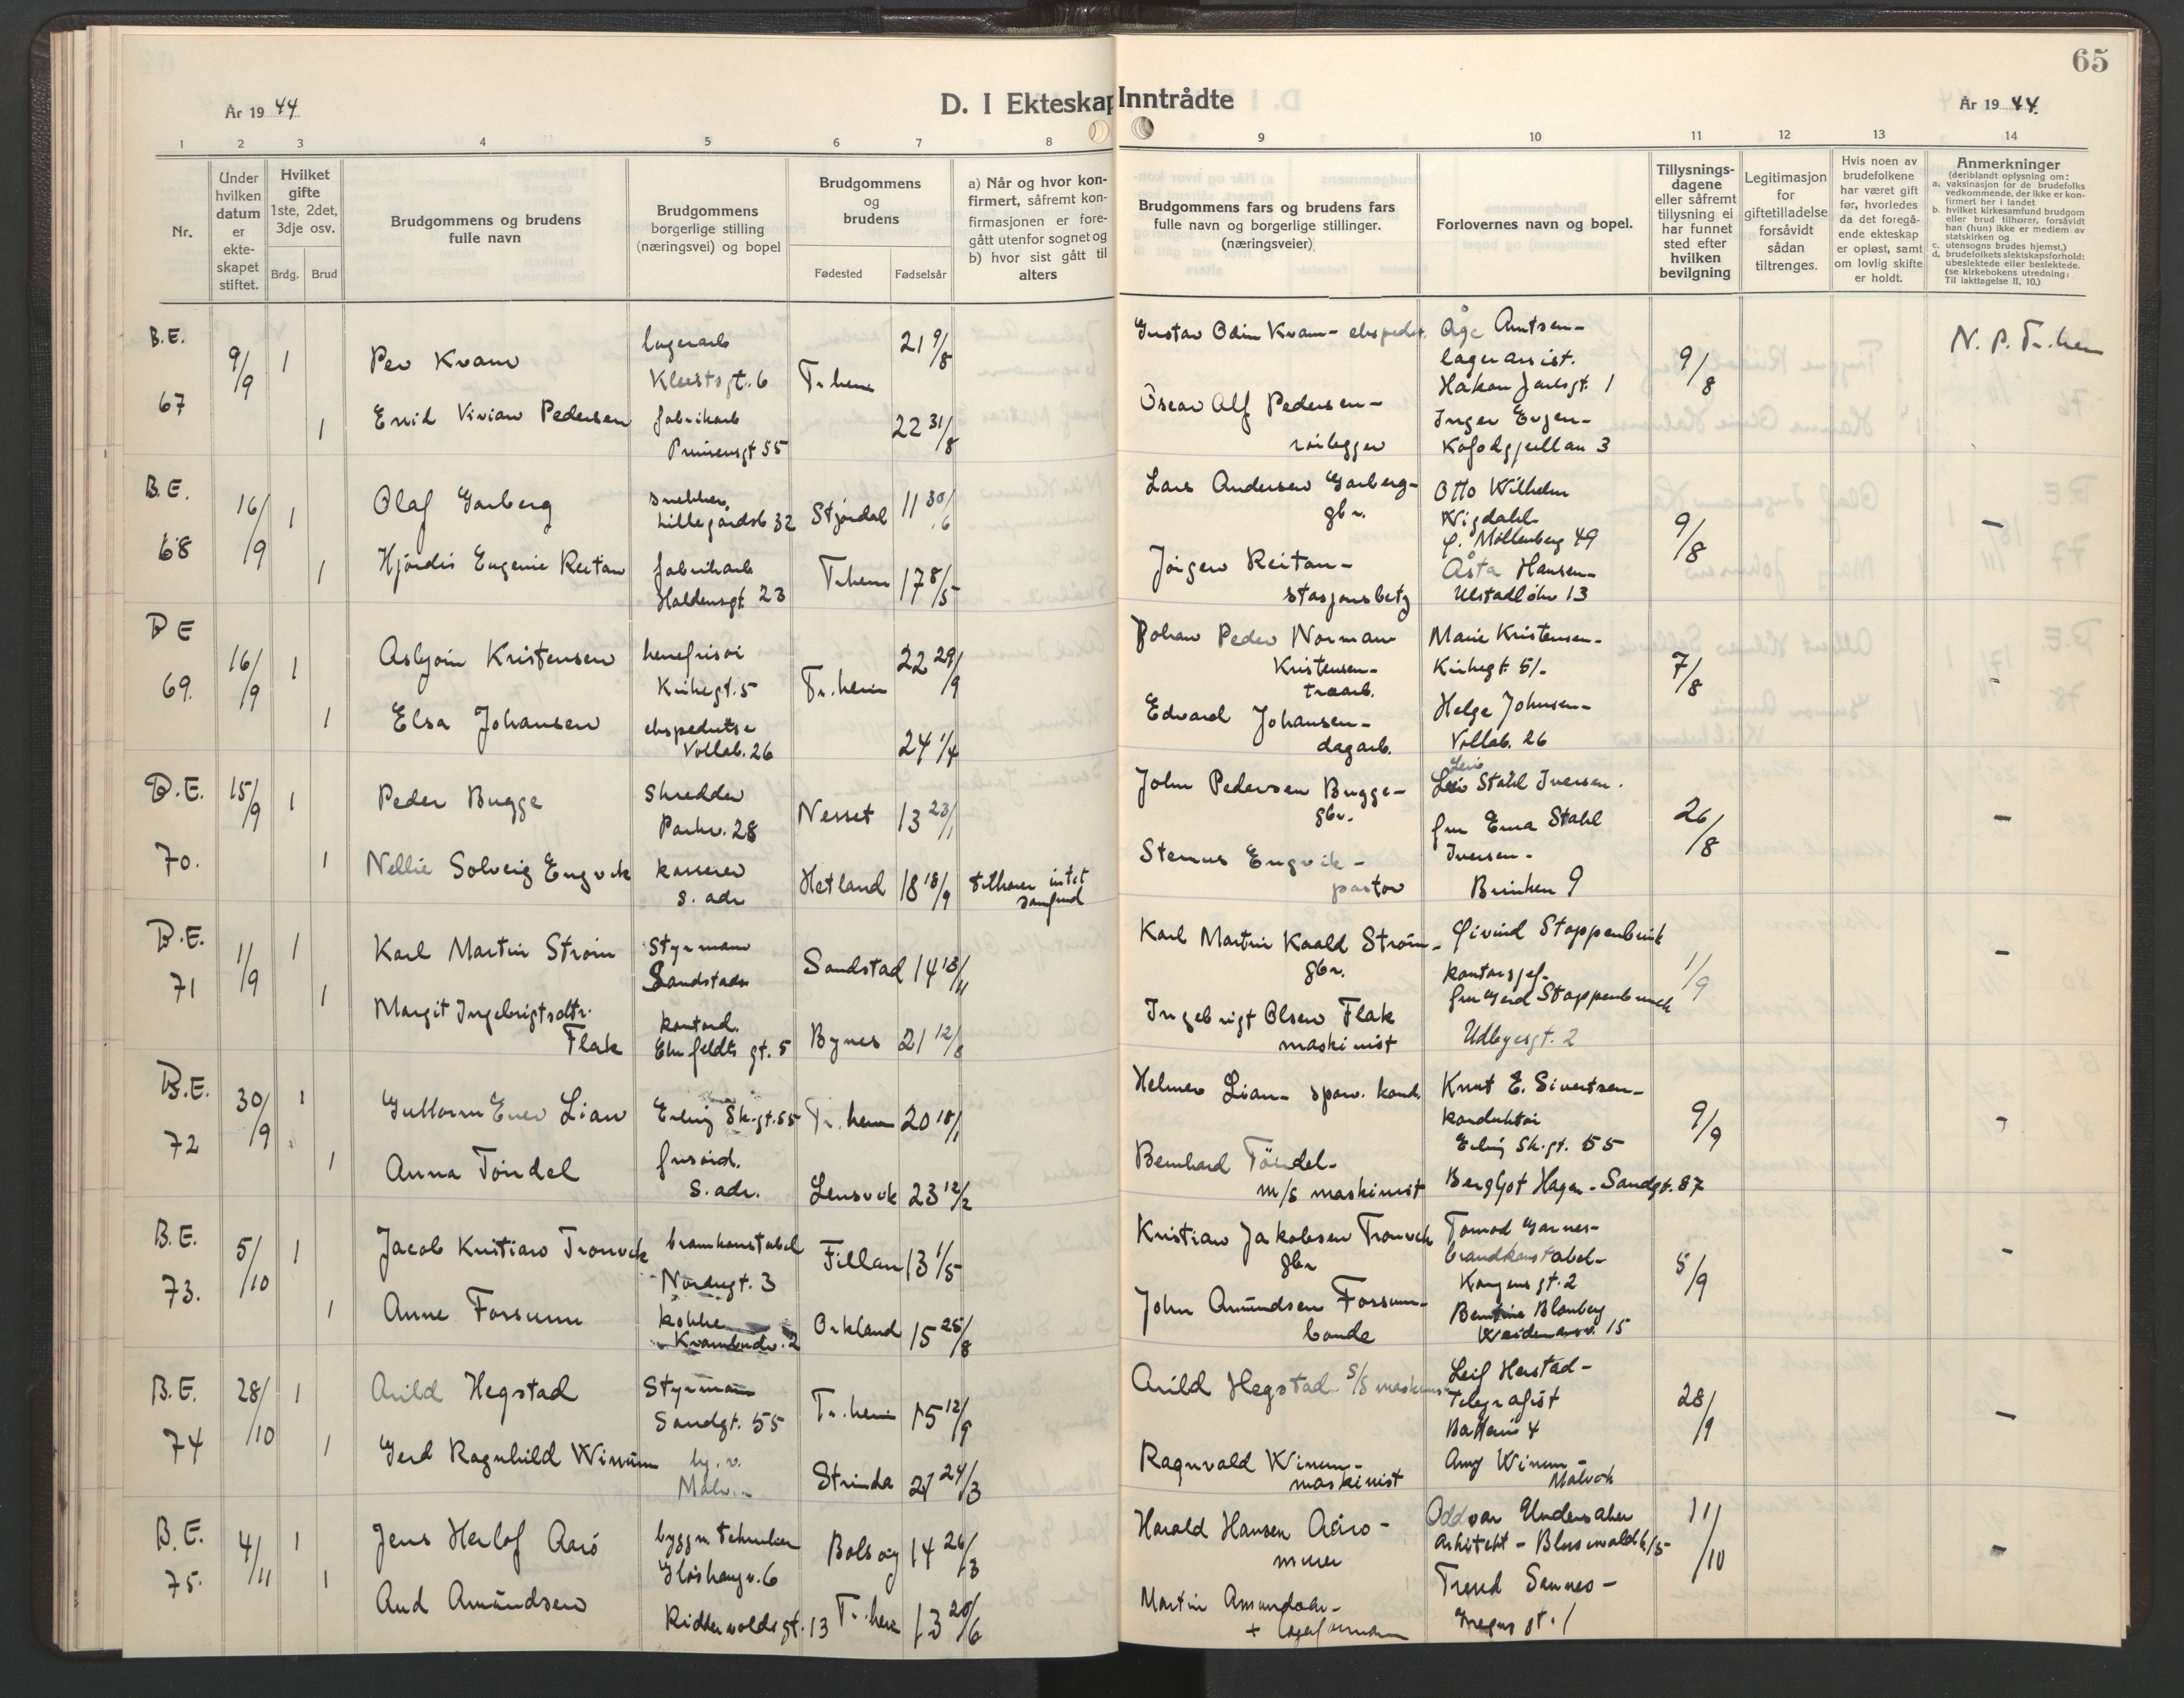 65
År 1944.
D. I Ekteskap Inntrådte
År 1944.
1 2 3 4 5 6 7 8 9 10 11 12 13 14
Nr.
Under hvilken datum er ekte- skapet stiftet.
Hvilket gifte 1ste, 2det, 3dje osv.
Brdg. Brud
Brudgommens og brudens fulle navn
Brudgommens borgerlige stilling (næringsvei) og bopel
Brudgommens og brudens
Fødested Fødselsår
a) Når og hvor kon- firmert, såfremt kon- firmasjonen er fore- gått utenfor sognet og b) hvor sist gått til alters
Brudgommens fars og brudens fars fulle navn og borgerlige stillinger. (næringsveier)
Forlovernes navn og bopel.
Tillysnings- dagene eller såfremt tillysning ei har funnet sted efter hvilken bevilgning
Legitimasjon for giftetilladelse forsåvidt sådan tiltrenges.
Hvis noen av brudefolkene har været gift før, hvorledes da det foregå- ende ekteskap er opløst, samt om lovlig skifte er holdt.
Anmerkninger
(deriblandt oplysning om:
a. vaksinasjon for de brudefolks vedkommende, der ikke er kon- firmert her i landet
b. hvilket kirkesamfund brudgom eller brud tilhører, forsåvidt han (hun) ikke er medlem av statskirken og
c. utensogns brudes hjemst.)
d. brudefolkets slektskapsforhold: ubeslektede eller beslektede. (se kirkebokens utredning: Til iakttagelse II, 10.)
B.E. 67 9/9 1 Per Kvam lagerarb Tr.heim 21 9/8 Gustav Odin Kvam - Åge Arntsen - 9/8
lagerassist.
Håkon Jarlsgt. 1
1 Enid Vivian Pedersen fabrikarb 22 31/8 Oscar Alf Pedersen - Inger Evjen -
Prinsensgt 55
B.E. 68 16/9 1 Olaf Garberg snekker Stjørdal 11 30/6 Lars Andersen Garberg - gbr. Otto Wilhelm 9/8 -
Wigdahl
ø. Møllenberg 49
1 Hjørdis Eugenie Reitan fabrikarb Tr.heim 17 8/5 Jørgen Reitan - Åsta Hansen -
Haldensgt 23 stasjonsbetj
B E 69. 16/9 1 Asbjørn Kristensen herrefrisør Tr.heim 22 29/9 Johan Peder Norman Marie Kristensen - 7/8 -
Kristensen -
1 Elsa Johansen Vollab. 26 24 1/4 Edvard Johansen - dagarb. Helge Johnsen -
Vollab. 26
B.E. 70. 15/9 1 Peder Bugge Skredder Nesset 13 23/1 John Pedersen Bugge - gbr. Leiv Stahl Iversen. 26/8 -
Parkv. 28
1 Nellie Solveig Engvik kasserer s. adr Hetland 18 18/9 tilhører intet samfund Stenius Engvik - pastor fru Erna Stahl Iversen -
Brinken 9
B.E. 71 1/9 1 Karl Martin Strøm Styrmann Sandstad 14 13/11 Karl Martin Kaald Strøm - gbr. Øivind Stoppenbrink 1/9 -
kontorsjef -
1 Margit Ingebrigtsdtr. Flak kontord. Bynes 21 12/8 Ingebrigt Olsen Flak maskinist fru Gerd Stoppenbrink
Udbyesgt. 2
B.E. 72 30/9 1 Guttorm Ener Lian Erling Sk.gt. 55 Tr.heim 20 18/1 Helmer Lian - sporv. kond. Knut E. Sivertsen - 9/9 -
konduktør
Erling Sk.gt. 55
1 Anna Tøndel s. adr. Lensvik 23 12/2 Bernhard Tøndel - m/s maskinist Bergljot Hagen - Sandgt. 87
B.E. 73. 5/10 1 Jacob Kristian Tronvik brannkonstabel Fillan 13 1/5 Kristian Jakobsen Tronvik gbr Tormod Garnes - 5/9 -
brandkonstabel -
Kongens gt. 2
1 Anne Forsunn kokke Orkland 15 25/8 John Amundsen Forsunn - bonde
B.E. 74 28/10 1 Arild Hegstad Styrmann Tr.heim 15 12/9 Arild Hegstad S/S maskinist Leif Herstad - 28/9 -
Sandgt. 55 Telegrafist
1 Gerd Ragnhild Winum Strinda 21 24/3 Ragnvald Winum - maskinist Amy Winum - Malvik
B.E. 75. 4/11 1 Jens Herlof Aarø byggn. tekniker Bolsøy 14 26/3 Harald Hansen Aarø - murer Oddvar 11/10 -
Arkitekt -
1 Aud Amundsen Riddervoldsgt. 13 Tr.heim 13 20/6 Martin Amundsen -
N. P. Tr.heim